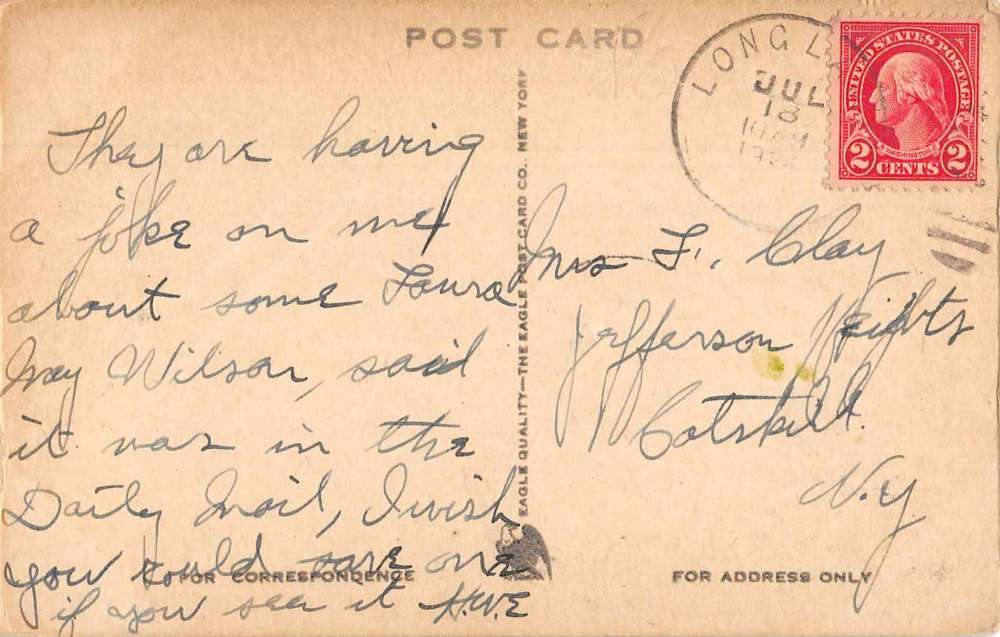 POST CARD
They are having
a joke on me
about some Laura
May Wilson, said
it was in the
Daily Mail, I wish
you could save one
if you see it H.W.E
FOR CORRESPONDENCE
EAGLE QUALITY—THE EAGLE POST CARD CO., NEW YORK
LONG L
JUL
18
10 AM
UNITED STATES POSTAGE
WASHINGTON
2 CENTS 2
Mrs F. Clay
Jefferson Heights
Catskill.
N.Y
FOR ADDRESS ONLY